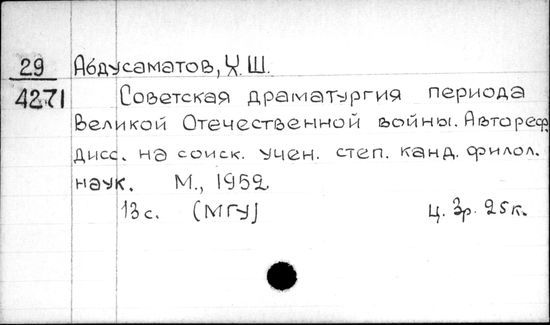 29 Абдусаматов, Х.Ш.
4271 Советская драматургия периода
Великой Отечественной войны. Автореф.
дисс. на соиск. учен. степ. канд. филол.
наук. М., 1952.
13 с. (МГУ) Ц. 3р. 25к.